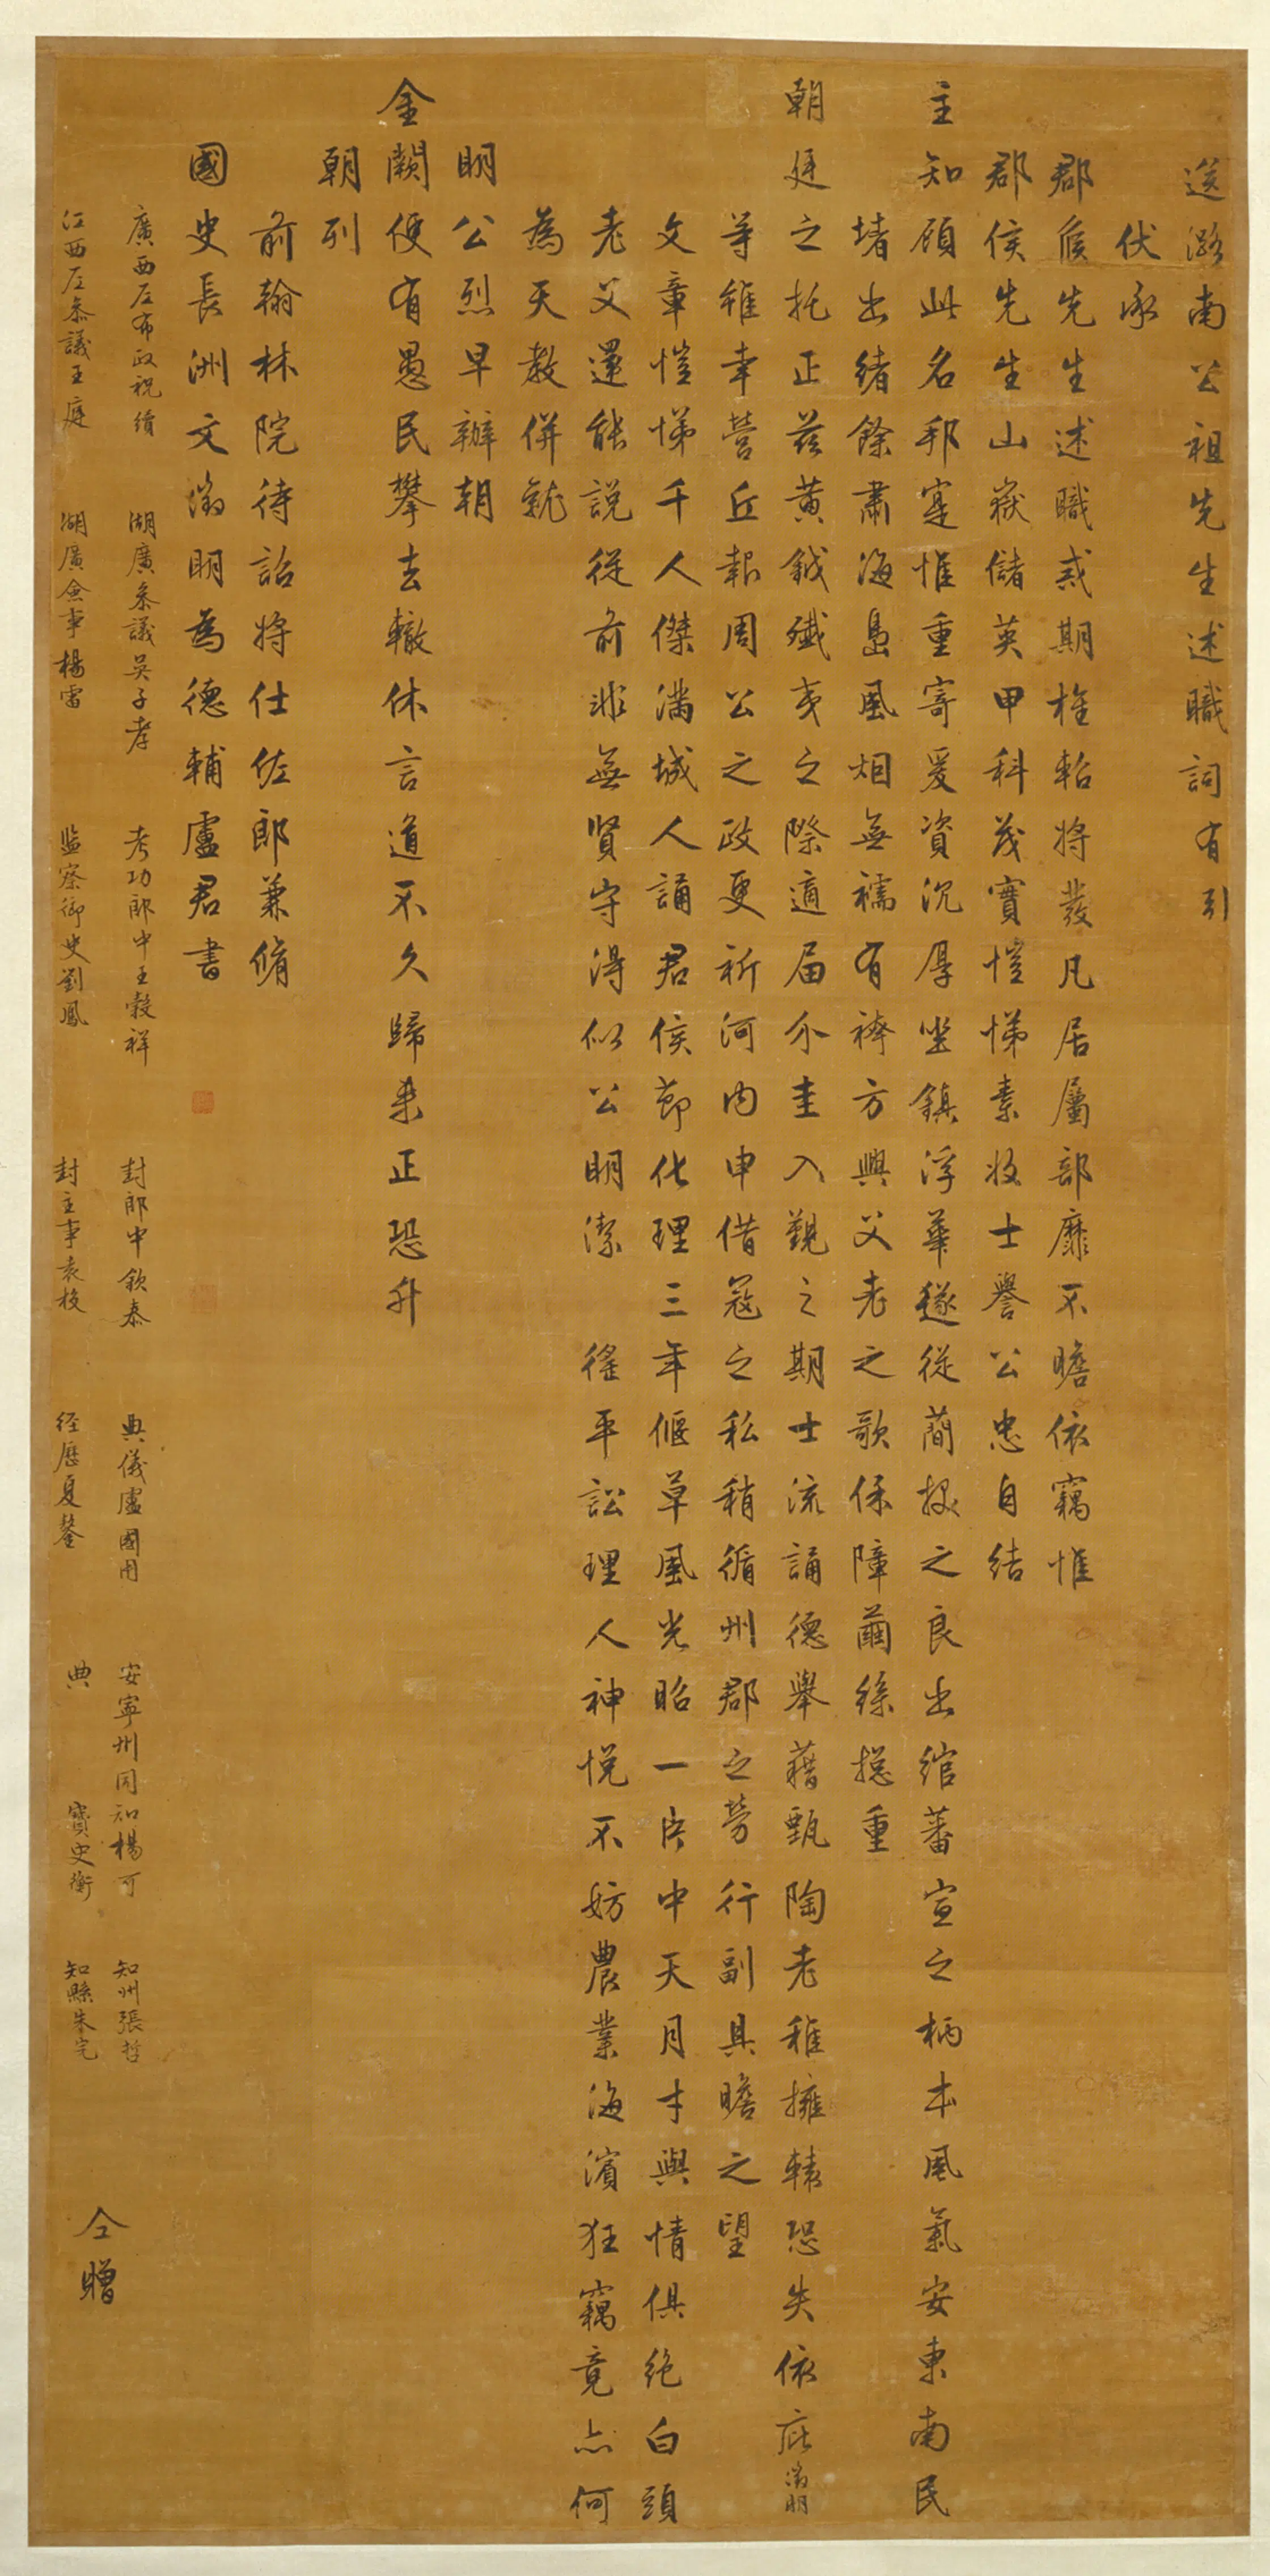 送潞南公祖先生述職詞有引
伏承
郡侯先生述職戒期旌軺將發凡居屬部靡不瞻依竊惟
郡侯先生山嶽儲英甲科茂實愷悌素收士譽公忠自結
主知顧此名邦寔惟重寄爰資沉厚坐鎮浮華遂從蘭掖之良出綰蕃宣之柄本風氣安東南民
堵出緒餘肅海島風烟無襦有袴方興父老之歌保障繭絲摠重
朝廷之托正茲黃鉞殲夷之際適屆介圭入覲之期士流誦德舉藉甄陶老稚擁轅恐失依庇徵明
等雖幸營丘報周公之政更祈河內申借寇之私稍循州郡之勞行副具瞻之望
文章愷悌千人傑滿城人誦君侯節化理三年偃草風光昭一片中天月才與情俱絕白頭
老父還能說從前非無賢守得似公明潔 徭平訟理人神悅不妨農業海濱狂竊竟亦何
為天教併就
明公烈早辦朝
金闕便有愚民攀去轍休言道不久歸來正恐升
朝列
前翰林院待詔將仕佐郎兼脩
國史長洲文徵明為德輔盧君書
廣西左布政祝續 湖廣參議吳子孝 考功郎中王穀祥 封郎中欽泰 典儀盧國用 安寧州同知楊可 知州張哲
江西左參議王庭 湖廣僉事楊雷 監察御史劉鳳 封主事袁校 經歷夏鏊 典寶史衡 知縣朱完
仝贈